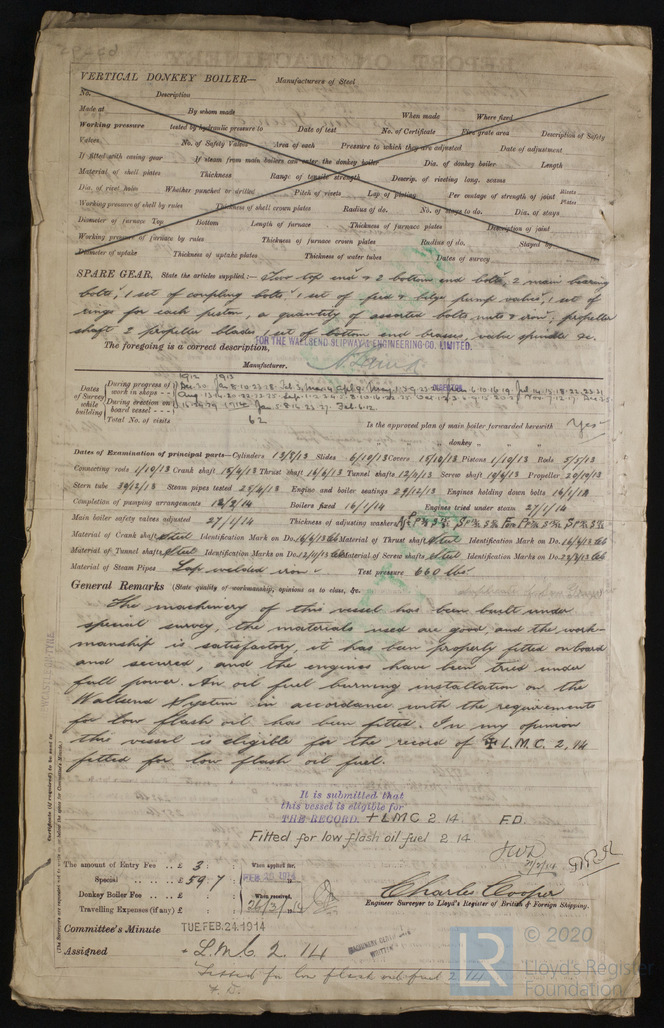 VERTICAL DONKEY BOILER— Manufacturers of Steel
No. Description
Made at By whom made When made Where fixed
Working pressure tested by hydraulic pressure to Date of test No. of Certificate Fire grate area Description of Safety
Valves No. of Safety Valves Area of each Pressure to which they are adjusted Date of adjustment
If fitted with easing gear If steam from main boilers can enter the donkey boiler Dia. of donkey boiler Length
Material of shell plates Thickness Range of tensile strength Descrip. of riveting long. seams
Dia. of rivet holes Whether punched or drilled Pitch of rivets Lap of plating Per centage of strength of joint Rivets Plates
Working pressure of shell by rules Thickness of shell crown plates Radius of do. No. of stays to do. Dia. of stays
Diameter of furnace Top Bottom Length of furnace Thickness of furnace plates Description of joint
Working pressure of furnace by rules Thickness of furnace crown plates Radius of do. Stayed by
Diameter of uptake Thickness of uptake plates Thickness of water tubes Dates of survey
SPARE GEAR. State the articles supplied:— Two top end & 2 bottom end bolts, 2 main bearing
bolts, 1 set of coupling bolts, 1 set of feed & bilge pump valves, 1 set of
rings for each piston, a quantity of assorted bolts nuts & iron, propeller
shaft 2 propeller blades, 1 set of bottom end brasses, valve spindle &c.
The foregoing is a correct description,
FOR THE WALLSEND SLIPWAY & ENGINEERING CO. LIMITED.
Manufacturer.
DIRECTOR
Dates of Survey while building
During progress of work in shops - -
During erection on board vessel - - -
Total No. of visits 62
Is the approved plan of main boiler forwarded herewith Yes
" " " donkey " " "
Dates of Examination of principal parts—Cylinders 13/8/13 Slides 6/10/13 Covers 15/10/13 Pistons 1/10/13 Rods 5/5/13
Connecting rods 1/10/13 Crank shaft 15/4/13 Thrust shaft 16/6/13 Tunnel shafts 12/4/13 Screw shaft Propeller
Stern tube Steam pipes tested Engine and boiler seatings 29/12/13 Engines holding down bolts 16/1/14
Completion of pumping arrangements 12/2/14 Boilers fixed 16/1/14 Engines tried under steam 27/1/14
Main boiler safety valves adjusted 27/1/14 Thickness of adjusting washers
Material of Crank shaft Steel Identification Mark on Do. Material of Thrust shaft Steel Identification Mark on Do.
Material of Tunnel shafts Steel Identification Marks on Do. Material of Screw shafts Steel Identification Marks on Do.
Material of Steam Pipes Lap welded iron Test pressure 660 lbs.
General Remarks (State quality of workmanship, opinions as to class, &c.
The machinery of this vessel has been built under
special survey, the materials used are good, and the work-
manship is satisfactory, it has been properly fitted onboard
and secured, and the engines have been tried under
full power. An oil fuel burning installation on the
Wallsend System in accordance with the requirements
for low flash oil has been fitted. In my opinion
the vessel is eligible for the record of ✠ L.M.C. 2, 14
fitted for low flash oil fuel.
It is submitted that
this vessel is eligible for
THE RECORD. + LMC 2 14 F.D.
Fitted for low flash oil fuel 2 14
The amount of Entry Fee .. £ 3
Special .. .. £ 59 . 7
Donkey Boiler Fee .. .. £
Travelling Expenses (if any) £
When applied for,
FEB. 20. 1914
When received,
Charles Cooper
Engineer Surveyor to Lloyd's Register of British & Foreign Shipping.
Committee's Minute TUE. FEB. 24. 1914
Assigned + L.M.C. 2 14
Fitted for low flash oil fuel 2 14
F. D.
Certificate (if required) to be sent to
(The Surveyors are requested not to write on or below the space for Committee's Minute.)
LR © 2020
Lloyd's Register
Foundation